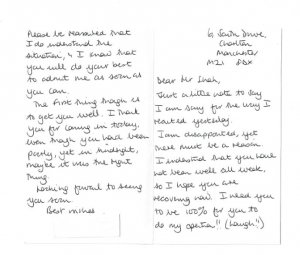 6 South Drive,
Chorlton
Manchester
M21 8DX
Dear Mr Shah,
Just a little note to say
I am sorry for the way I
reacted yesterday.
I am disappointed, yet
there must be a reason.
I understand that you have
not been well all week,
so I hope you are
recovering now. I need you
to be 100% for you to
do my operation! (Laugh!)
Please be reassured that
I do understand the
situation, & I know that
you will do your best
to admit me as soon as
you can.
The first thing though is
to get you well. I thank
you for coming in today,
even though you had been
poorly, yet in hindsight,
maybe it was the right
thing.
Looking forward to seeing
you soon.
Best wishes